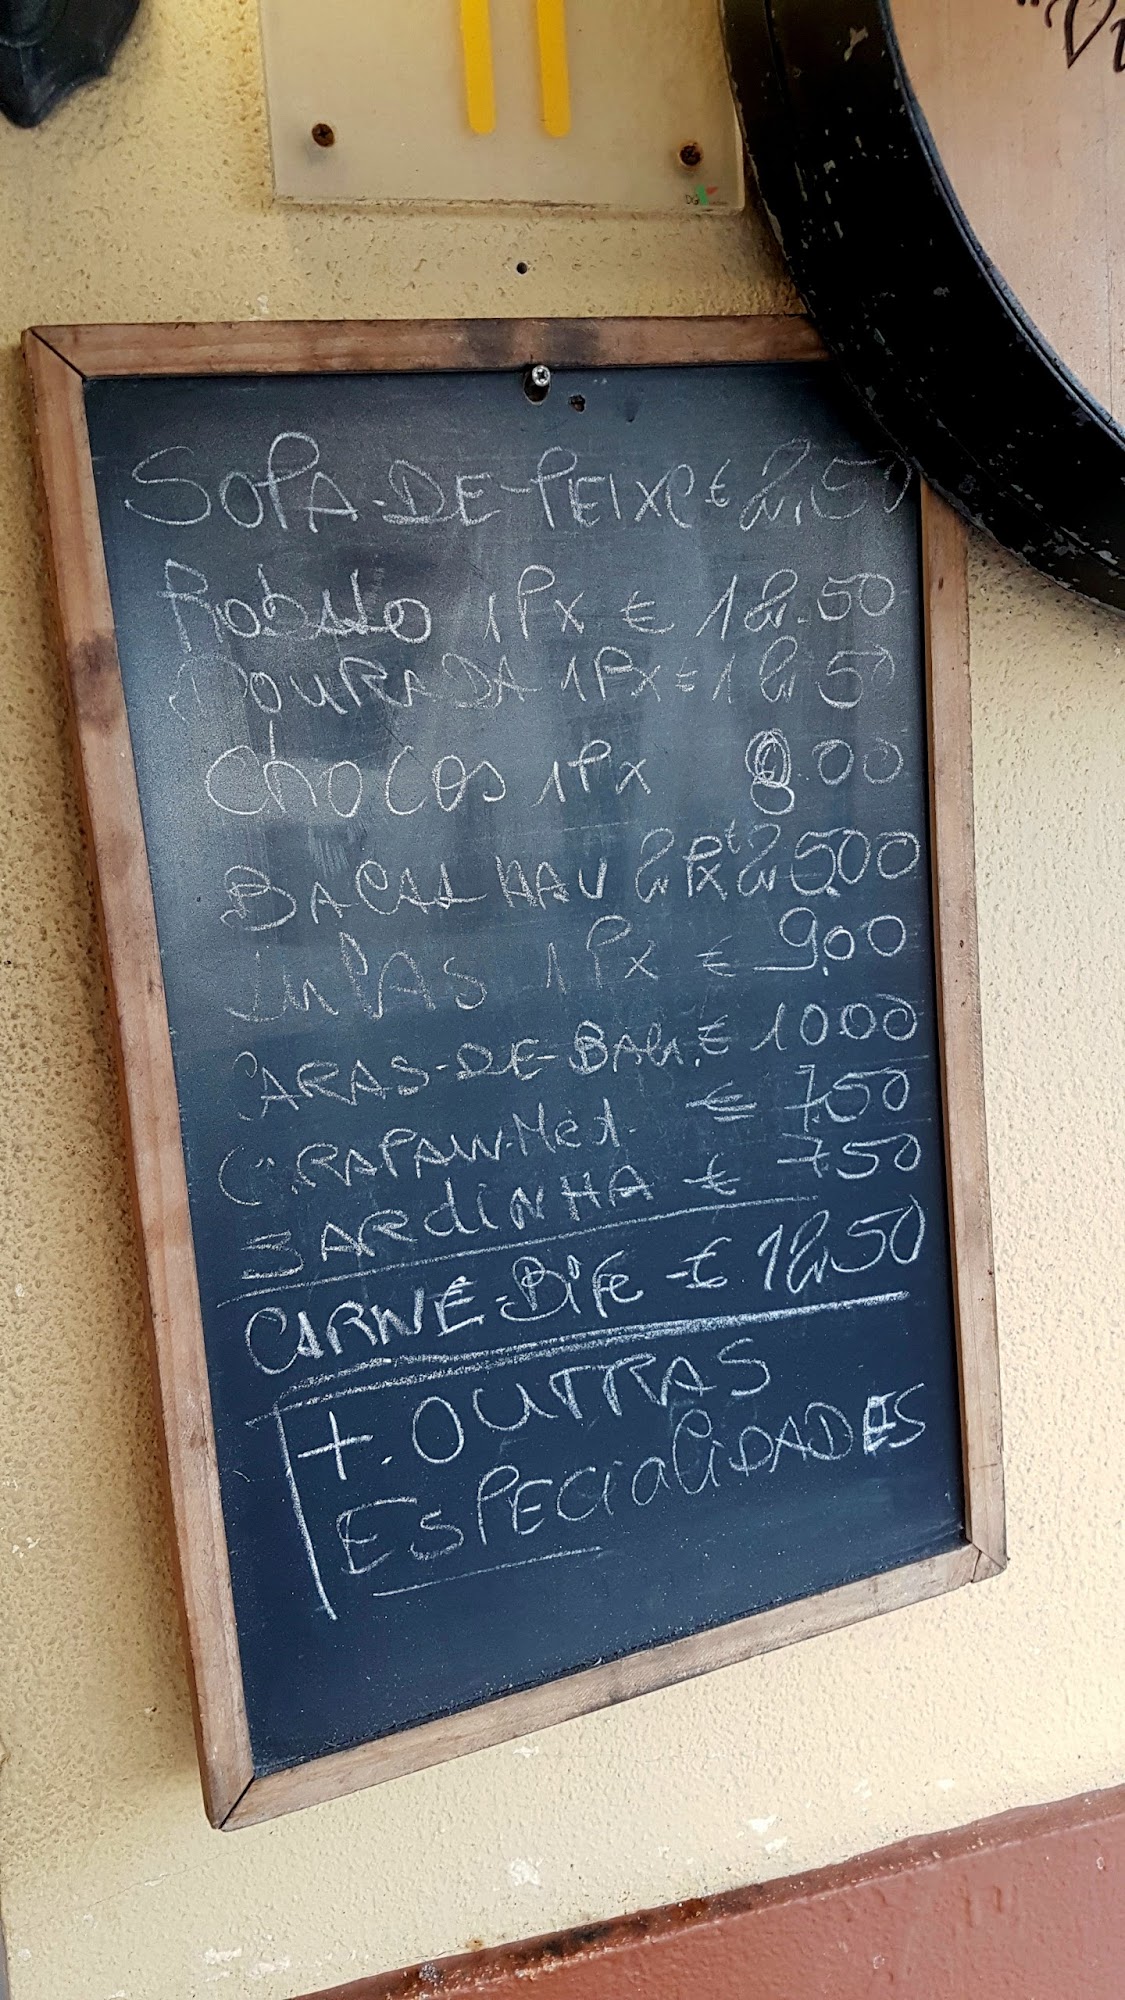 SOPA-DE-PEIXE € 2,50
Robalo 1Px € 12.50
DOURADA 1Px € 12 50
ChoCos 1Px 8 00
BACALHAU 2 Px € 25.00
LuLAS 1Px € 9.00
CARAS-DE-BAC. € 1000
CARAPAU-Méd. € 7.50
SARdiNHA € 750
CARNE-BiFe € 12,50
+. OUTRAS
ESPECiaLiDADES
"Vi
DG